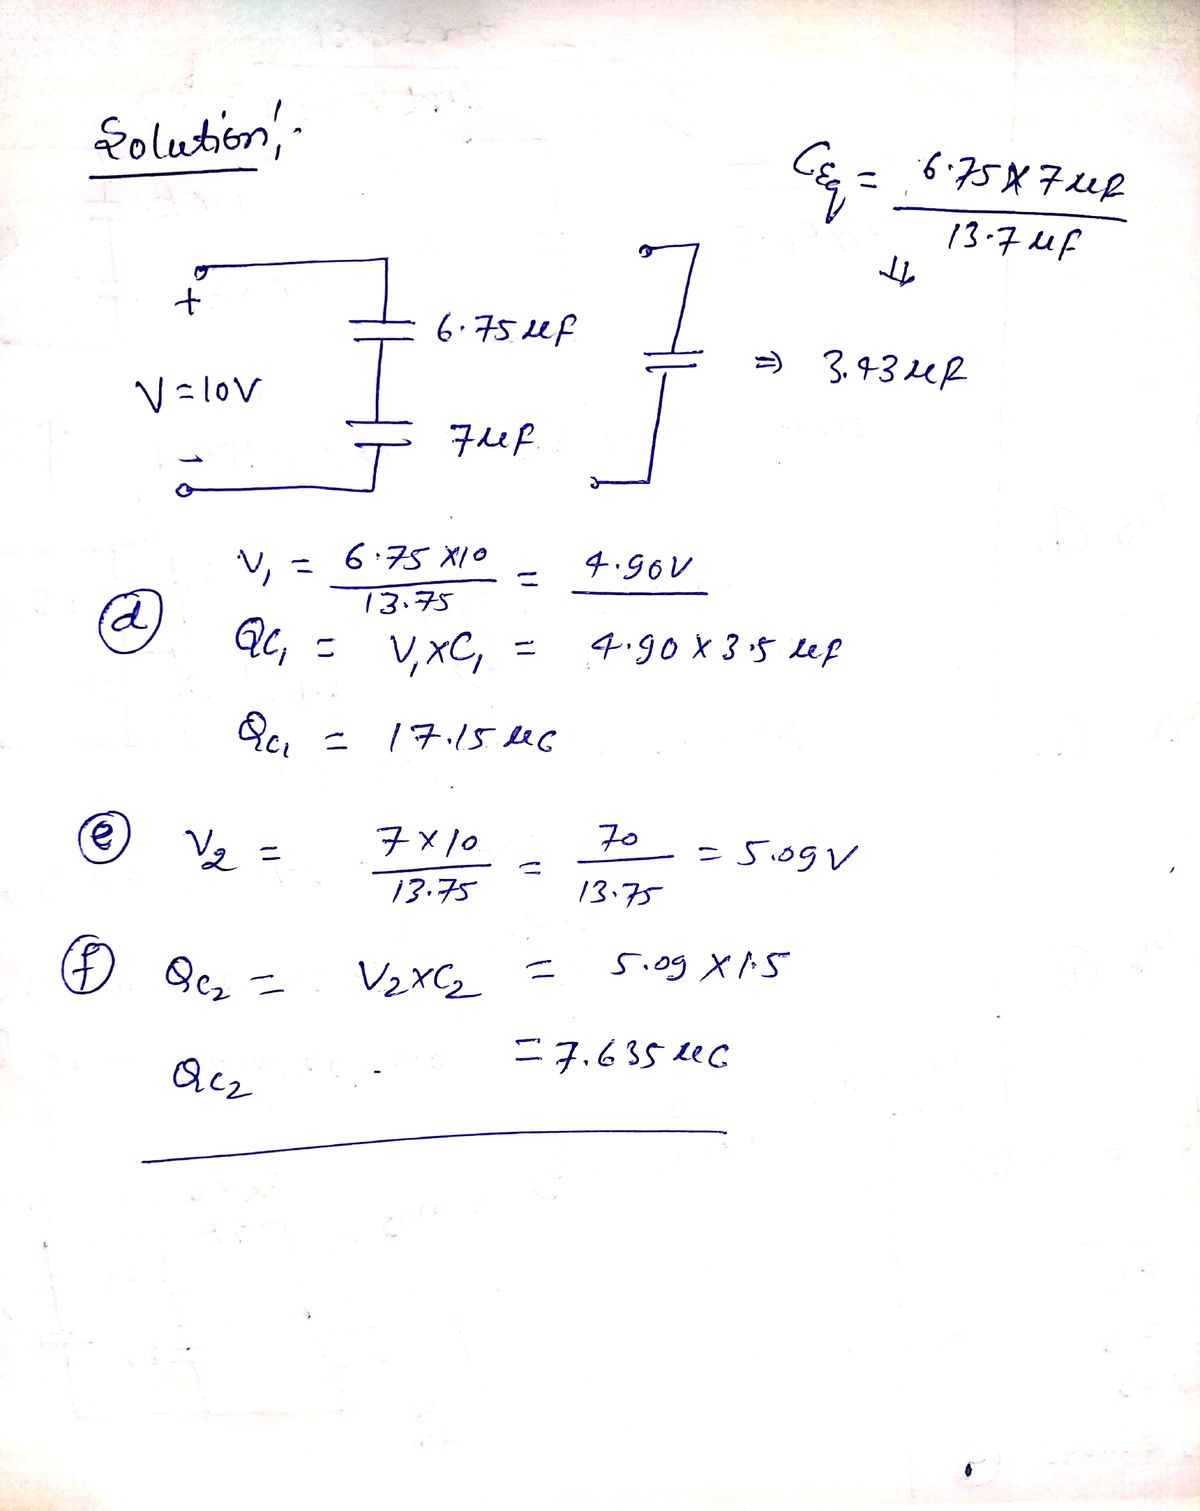 Solution:-
CEq = 6.75 X 7 μF / 13.7 μF
⇓
+
6.75 μF
V = 10V
⇒ 3.43 μF
7 μF
-
V1 = 6.75 X10 / 13.75 = 4.90V
(d) QC1 = V1XC1 = 4.90 X 3.5 μF
QC1 = 17.15 μC
(e) V2 = 7 X 10 / 13.75 = 70 / 13.75 = 5.09V
(f) QC2 = V2XC2 = 5.09 X 1.5
QC2 = 7.635 μC